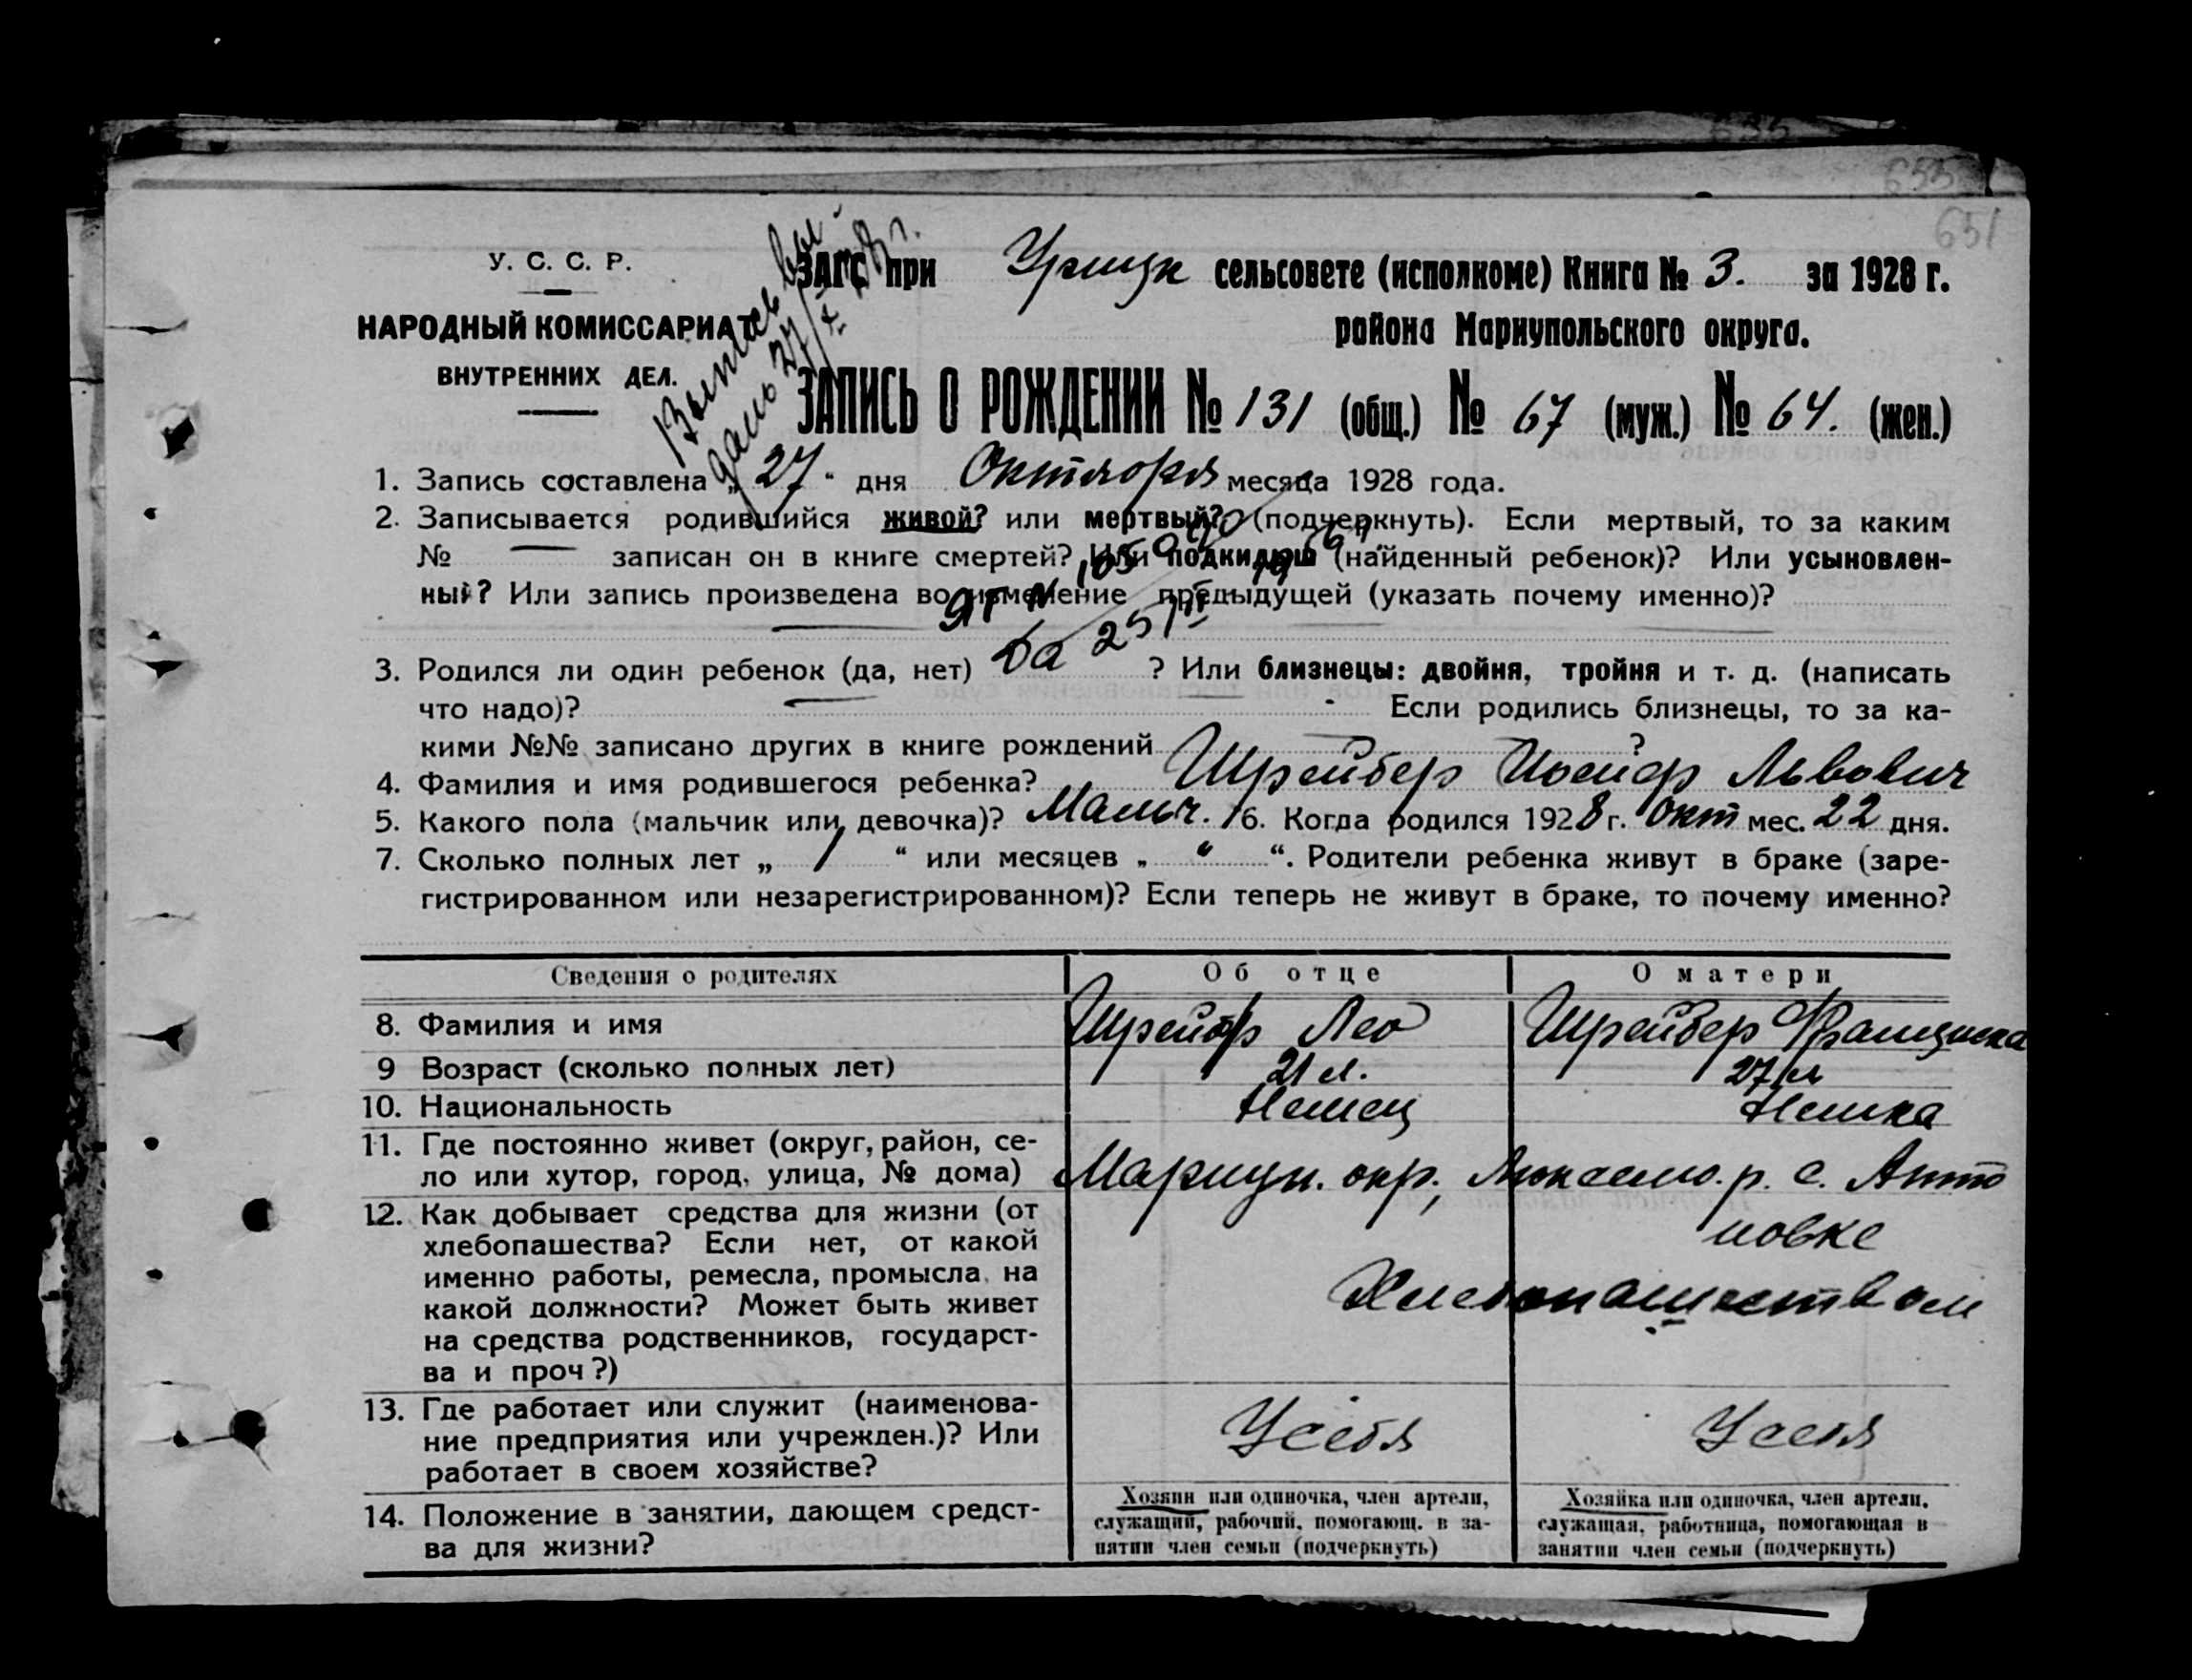 635
655
651
У. С. С. Р.
НАРОДНЫЙ КОМИССАРИАТ
ВНУТРЕННИХ ДЕЛ.
Выпись вы-
дано 27/X
ЗАГС при сельсовете (исполкоме) Книга № 3. за 1928 г.
района Мариупольского округа.
ЗАПИСЬ О РОЖДЕНИИ № 131 (общ.) № 67 (муж.) № 64. (жен.)
1. Запись составлена „ 27 “ дня Октября месяца 1928 года.
2. Записывается родившийся живой? или мертвый? (подчеркнуть). Если мертвый, то за каким
№ — записан он в книге смертей? Или подкидыш (найденный ребенок)? Или усыновлен-
ный? Или запись произведена во изменение предыдущей (указать почему именно)?
3. Родился ли один ребенок (да, нет) Да ? Или близнецы: двойня, тройня и т. д. (написать
что надо)? — Если родились близнецы, то за ка-
кими №№ записано других в книге рождений — ?
4. Фамилия и имя родившегося ребенка? Шрейбер Иосиф Львович
5. Какого пола (мальчик или девочка)? Мальч. 6. Когда родился 1928 г. Окт мес. 22 дня.
7. Сколько полных лет „ “ или месяцев „ “. Родители ребенка живут в браке (заре-
гистрированном или незарегистрированном)? Если теперь не живут в браке, то почему именно?
Сведения о родителях Об отце О матери
8. Фамилия и имя Шрейбер Лео Шрейбер Франциска
9 Возраст (сколько полных лет) 21 л. 27 л
10. Национальность Немец Немка
11. Где постоянно живет (округ, район, се-
ло или хутор, город, улица, № дома) Мариуп. окр., р. с. Анто
новке
12. Как добывает средства для жизни (от
хлебопашества? Если нет, от какой
именно работы, ремесла, промысла, на
какой должности? Может быть живет
на средства родственников, государст-
ва и проч?)
Хлебопашеством
13. Где работает или служит (наименова-
ние предприятия или учрежден.)? Или
работает в своем хозяйстве?
У себя У себя
14. Положение в занятии, дающем средст-
ва для жизни?
Хозяин или одиночка, член артели,
служащий, рабочий, помогающ. в за-
нятии член семьи (подчеркнуть)
Хозяйка или одиночка, член артели,
служащая, работница, помогающая в
занятии член семьи (подчеркнуть)